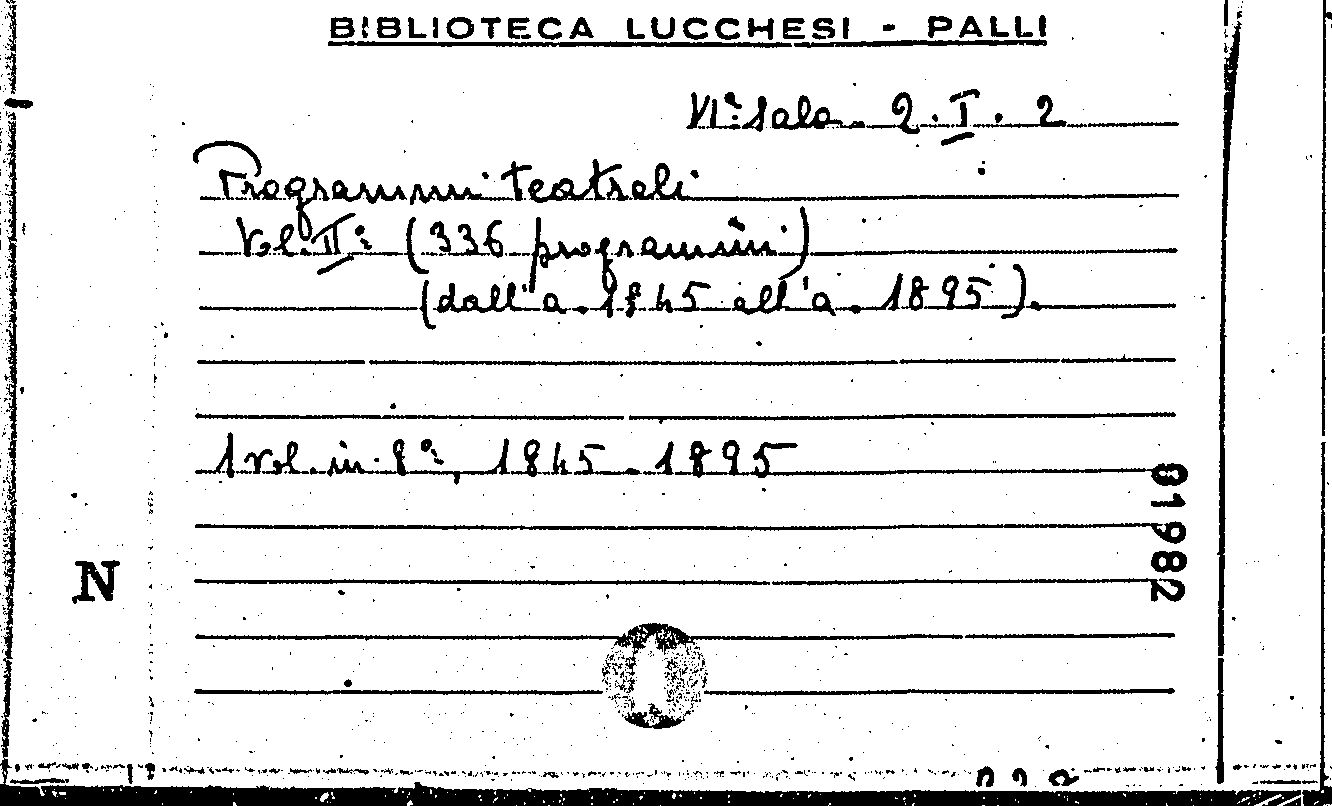 BIBLIOTECA LUCCHESI - PALLI
VIª Sala. Q. I. 2
Programmi teatrali
Vol. IIº (336 programmi)
(dall'a. 1845 all'a. 1895).
1 vol. in 8º, 1845-1895
81982
N